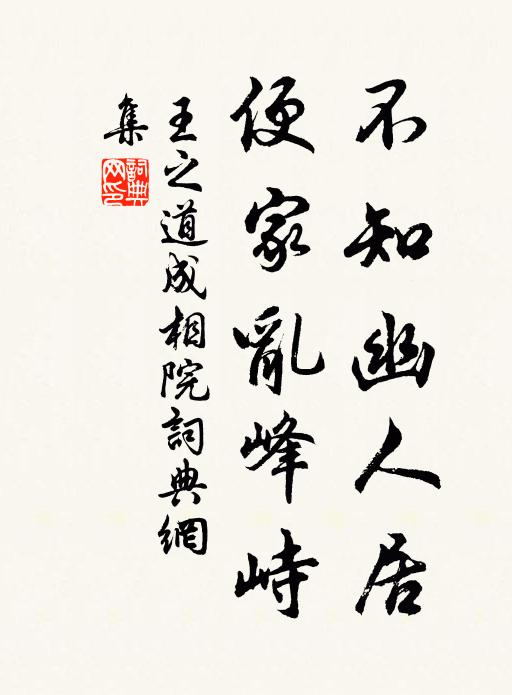 不知幽人居
便家亂峰峙
王之道成相院詞典網
集
詞典網印